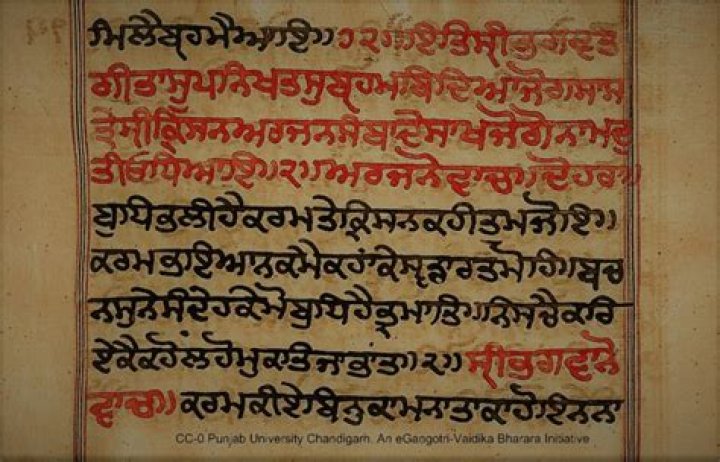 ਮਿਲੈਬ੍ਰਹਮੈਆਇ॥੭੨॥ਇਤਿਸ੍ਰੀਭਗਵਤ
ਗੀਤਾਸੁਪਾਨਿਖਤਸੁਬ੍ਰਹਮਬਿਦਿਆਜੋਗਸਾਸ
ਤ੍ਰੇਸ੍ਰੀਕ੍ਰਿਸਨਅਰਜਨਸੰਬਾਦੇਸਾਂਖਜੋਗੋਨਾਮਦੁ
ਤੀਓਧਿਆਇ॥੨॥ਅਰਜਨੋਵਾਚ॥ਦੋਹਰਾ॥
ਬੁਧਿਭਲੀਹੈਕਰਮਤੇਕ੍ਰਿਸਨਕਹੀਤੁਮਜੋਇ॥
ਕਰਮਭਇਆਨਕਮੈਕਹਾਂਕੇਸ੍ਵਡਾਰਤਮੋਹਿ॥ਬਚ
ਨਸੁਨੇਸੰਦੇਹਕੇਮੋਬੁਧਿਹੈਭ੍ਰਮਾਤਿ॥ਨਿਸਚੈਕਰਿ
ਏਕੈਕਹੋਲਹੋਮੁਕਤਿਜਾਭਾਤ॥੨॥ਸ੍ਰੀਭਗਵਾਨੋ
ਵਾਚ॥ਕਰਮਕੀਏਬਿਨੁਕਾਮਨਾਤਾਕਾਹੋਇਨਨਾ
CC-0 Punjab University Chandigarh. An eGangotri-Vaidika Bharara Initiative